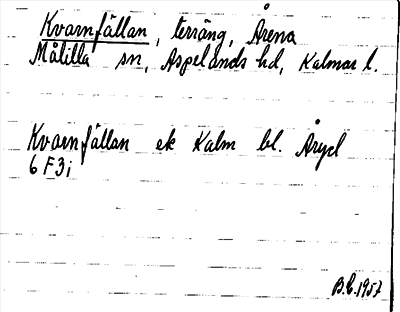 Kvarnfällan, terräng, Årena
Målilla sn, Aspelands hd, Kalmar l.
Kvarnfällan ek Kalm bl.
6 F3i
B.L. 1957